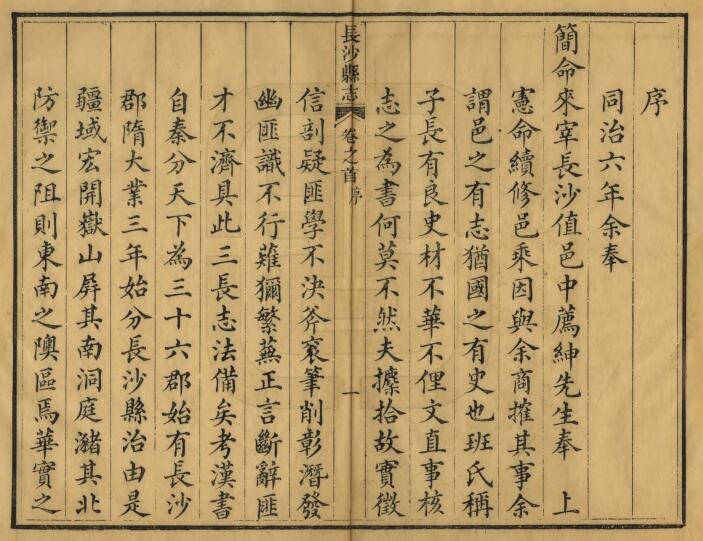 序
同治六年余奉
簡命來宰長沙值邑中薦紳先生奉 上
憲命續修邑乘因與余商搉其事余
謂邑之有志猶國之有史也班氏稱
子長有良史材不華不俚文直事核
志之為書何莫不然夫攗拾故實徵
長沙縣志 卷之首 序 一
信剖疑匪學不決斧袞筆削彰潛發
幽匪識不行薙獮繁蕪正言斷辭匪
才不濟具此三長志法備矣考漢書
自秦分天下為三十六郡始有長沙
郡隋大業三年始分長沙縣治由是
疆域宏開嶽山屏其南洞庭瀦其北
防禦之阻則東南之隩區焉華實之